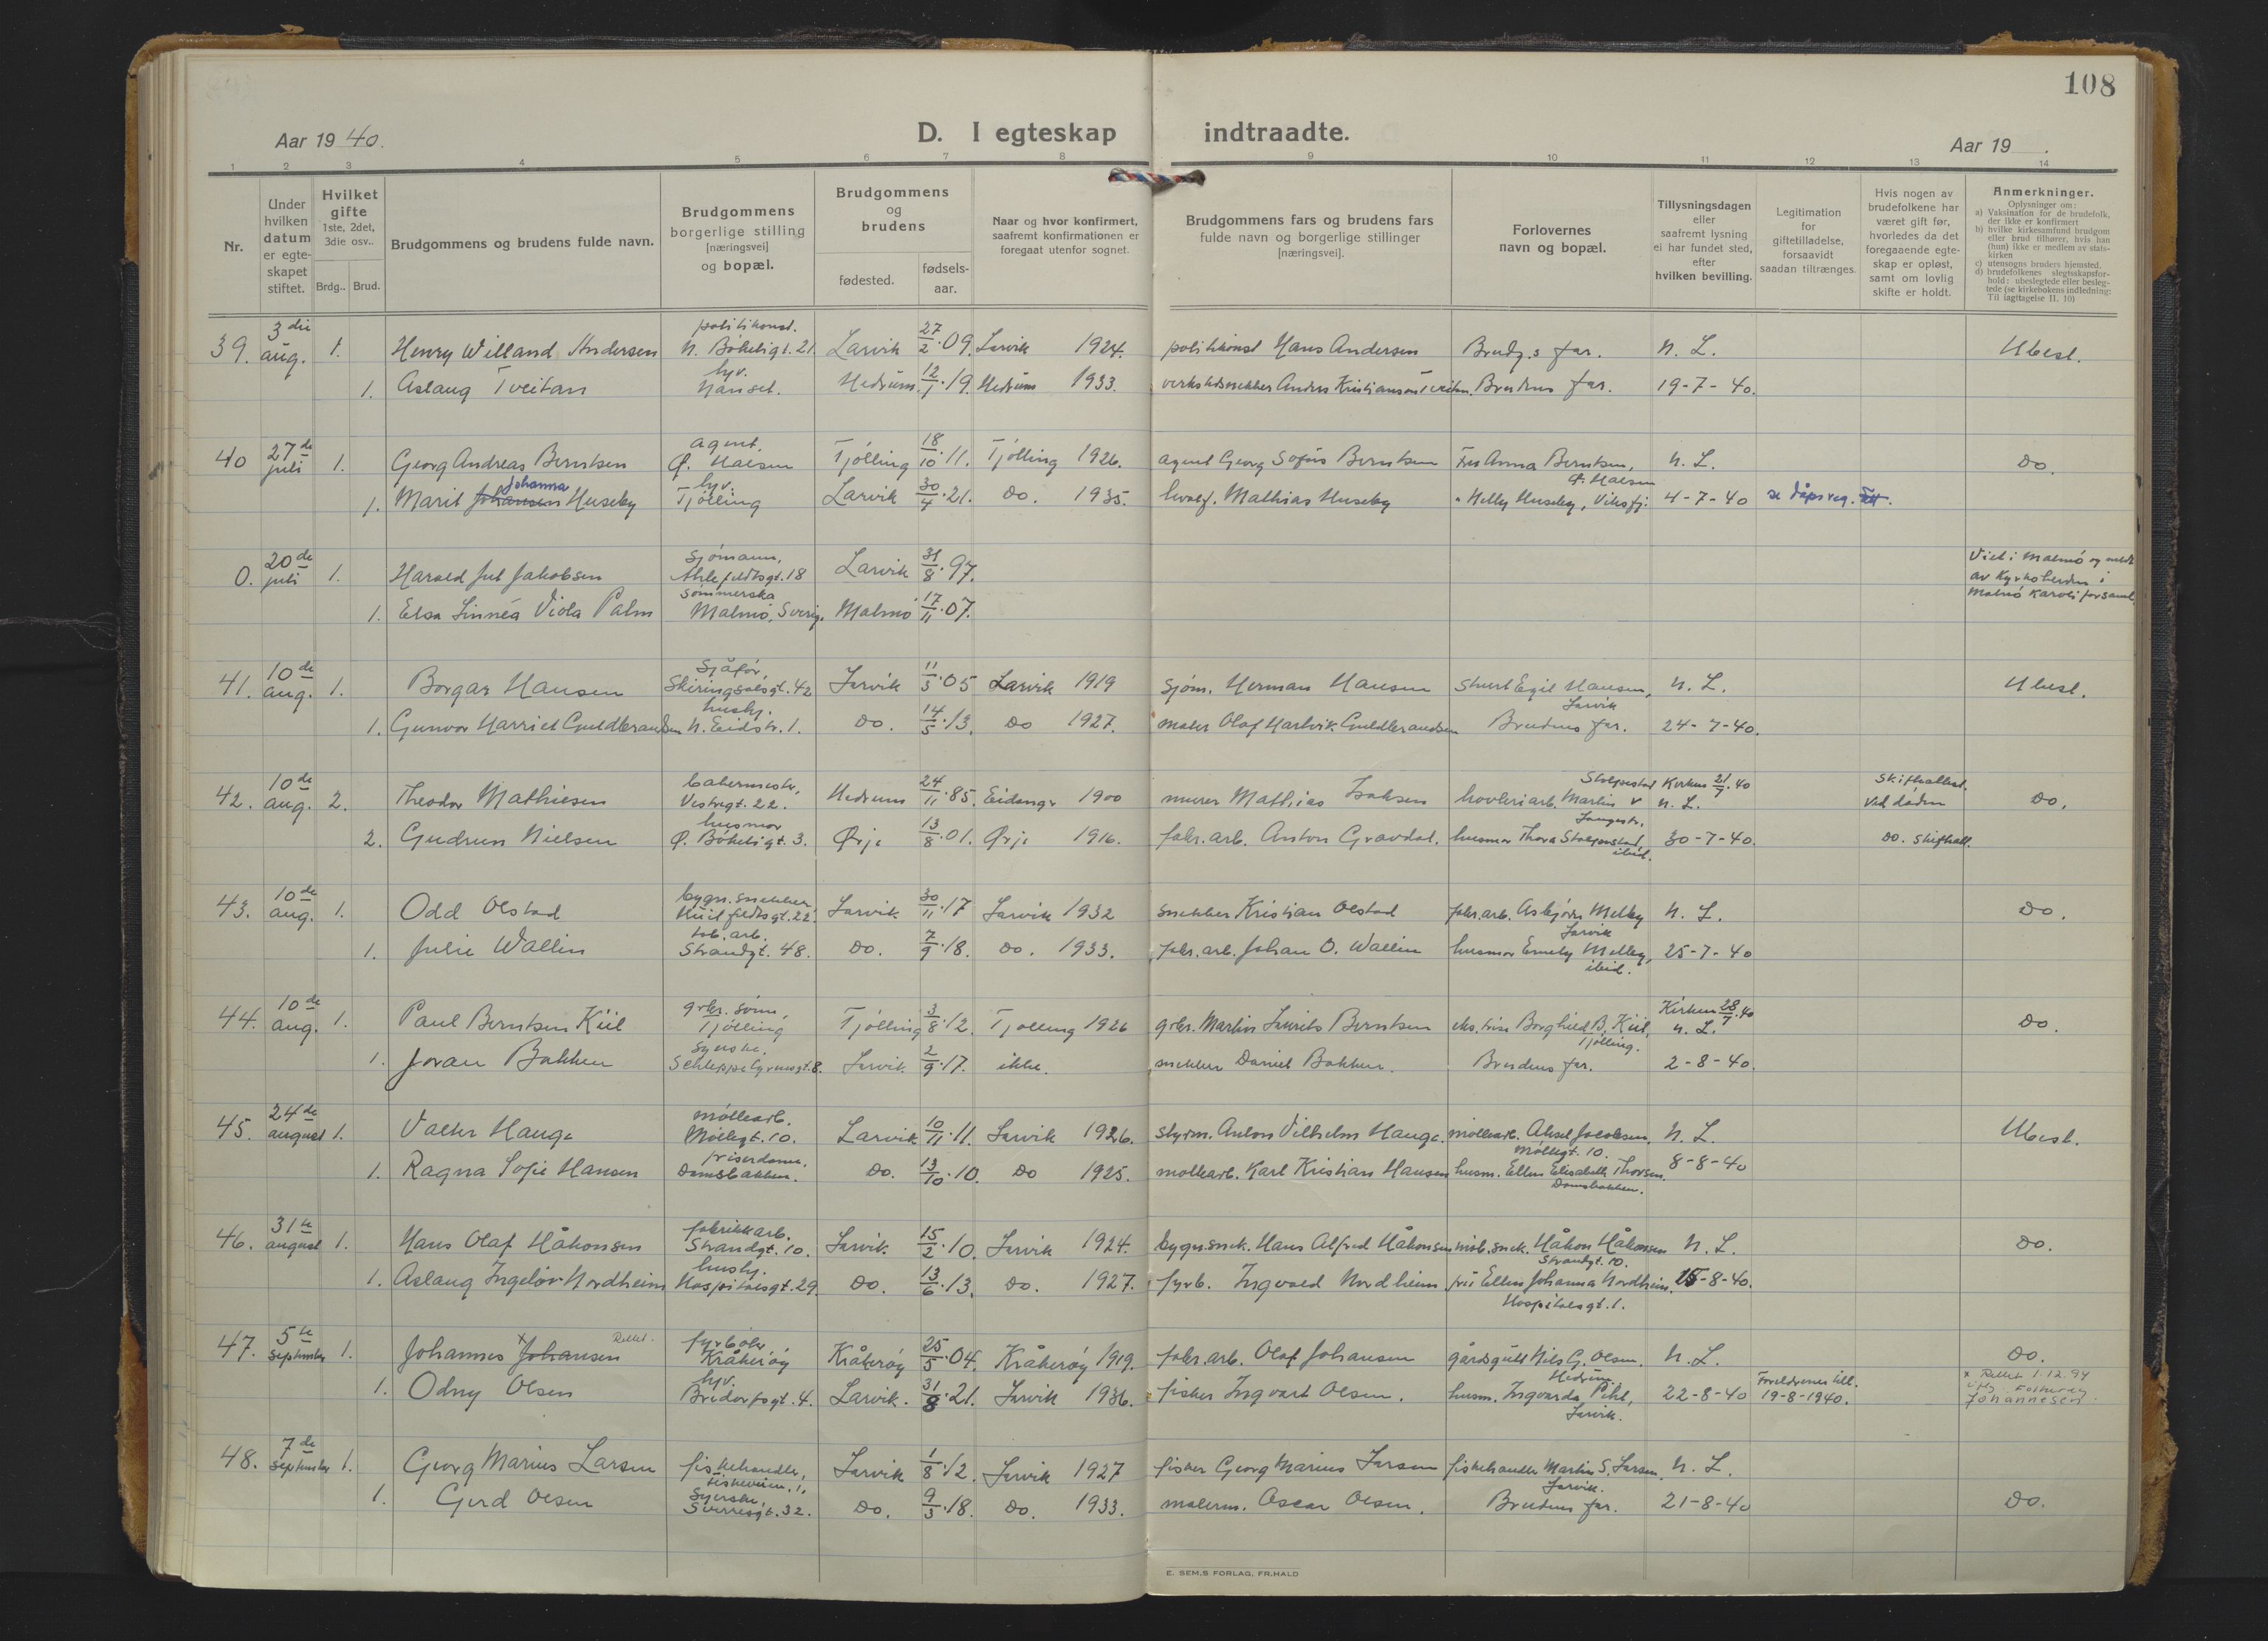 108
Aar 1940.
D. I egteskap indtraadte.
Aar 19 .
1 2 3 4 5 6 7 8 9 10 11 12 13 14
Nr.
Under hvilken datum er egteskapet stiftet.
Hvilket gifte 1ste, 2det, 3die osv..
Brdg.. Brud.
Brudgommens og brudens fulde navn.
Brudgommens borgerlige stilling [næringsvei] og bopæl.
Brudgommens og brudens
fødested. fødselsaar.
Naar og hvor konfirmert, saafremt konfirmationen er foregaat utenfor sognet.
Brudgommens fars og brudens fars fulde navn og borgerlige stillinger [næringsvei].
Forlovernes navn og bopæl.
Tillysningsdagen eller saafremt lysning ei har fundet sted, efter hvilken bevilling.
Legitimation for giftetilladelse, forsaavidt saadan tiltrænges.
Hvis nogen av brudefolkene har været gift før, hvorledes da det foregaaende egteskap er opløst, samt om lovlig skifte er holdt.
Anmerkninger.
Oplysninger om:
a) Vaksination for de brudefolk, der ikke er konfirmert
b) hvilke kirkesamfund brudgum eller brud tilhører, hvis han (hun) ikke er medlem av statskirken
c) utensogns bruders hjemsted.
d) brudefolkenes slegtsskapsforhold: ubeslegtede eller beslegtede (se kirkebokens indledning: Til iagttagelse II. 10)
39. 3die aug. 1. Henry Willand Andersen politikonst. N. Bøkeligt. 21. Larvik 27/2.09. Larvik 1924. politikonst Hans Andersen Brudg.s far. N. L. Ubesl.
1. Aslaug Tveitan hv. Nanset. Hedrum. 12/1.19. Hedrum 1933. verkstedsnekker Anders Kristianson Tveitan. Brudens far. 19-7-40.
40 27de juli 1. Georg Andreas Berntsen agent Ø. Halsen Tjølling 18/10.11. Tjølling 1926. agent Georg Sofus Berntsen Fru Anna Berntsen, Ø. Halsen N. L. Do.
1. Marit Johansen Johanna Huseby hv. Tjølling Larvik 30/4.21. Do. 1935. hvalf. Mathias Huseby " Helly Huseby, Viksfj. 4-7-40 se dåpsreg.
0. 20de juli 1. Harald Juel Jakobsen Sjømann, Ahlefeldtsgt. 18 Larvik 31/8.97. Viet i Malmø og meldt av Kyrkoherden i Malmø Karoli forsaml.
1. Elsa Linnéa Viola Palm sømmerska Malmø, Sverige Malmø 17/11.07.
41. 10de aug. 1. Borgar Hansen Sjåfør, Skiringsalsgt. 42 Larvik 11/3.05 Larvik 1919 sjøm. Herman Hansen Egil Hansen, Larvik N. L. Ubesl.
1. Gunvor Harriet Guldbrandsen hushj. N. Eidstr. 1. Do. 14/5.13. Do 1927. maler Olaf Hartvik Guldbrandsen Brudens far. 24-7-40.
42. 10de aug. 2. Theodor Mathiesen Vestregt. 22. Hedrum 24/11.85. Eidanger 1900 murer Mathias Isaksen høvleriarb. Martin Stolpestad Langestr. Kirken 21/7.40 N. L. Skifteattest. Ved døden Do.
2. Gudrun Nielsen husmor Ø. Bøkeligt. 3. Ørje 13/8.01. Ørje 1916. fabr. arb. Anton Gravdal. husmor Thora Stolpestad, ibid. 30-7-40. Do. Skifteatt.
43. 10de aug. 1. Odd Olstad bygn. snekker Huitfeldtsgt. 22. Larvik 30/11.17 Larvik 1932 snekker Kristian Olstad fabr. arb. Asbjørn Melby Larvik N. L. Do.
1. Julie Wallin tob. arb. Strandgt. 48. Do. 7/9.18. Do. 1933. fabr. arb. Johan O. Wallin husmor Emely Melby, ibid. 25-7-40
44. 10de aug. 1. Paul Berntsen Kiil grbr. sønn, Tjølling Tjølling 3/8.12. Tjølling 1926 grbr. Martin Laurits Berntsen eks. frue Borghild B. Kiil, Tjølling. Kirken 28/7.40 N. L. Do.
1. Joran Bakken Syerske. Schleppegrensgt. 8. Larvik 2/9.17. ikke. snekker Daniel Bakken. Brudens far. 2-8-40.
45. 24de august 1. Valter Hauge møllearb. Møllegt. 10. Larvik 10/11.11. Larvik 1926. styrm. Anton Vilhelm Hauge. møllearb. Aksel Jacobsen, Møllegt. 10. N. L. Ubesl.
1. Ragna Sofie Hansen friserdame. Damsbakken. Do. 13/10.10. Do 1925. møllearb. Karl Kristian Hansen husm. Ellen Elisabeth Thorsen. Damsbakken. 8-8-40
46. 31te august 1. Hans Olaf Håkonsen fabrikkarb. Strandgt. 10. Larvik 15/2.10. Larvik 1924. bygn. snek. Hans Alfred Håkonsen møb. snek. Håkon Håkonsen Strandgt. 10. N. L. Do.
1. Aslaug Ingeløv Nordheim hushj. Hospitalsgt. 29. Do. 13/6.13. Do. 1927. fyrb. Ingvald Nordheim frü Ellen Johanna Nordheim. Hospitalsgt. 1. 15-8-40.
47. 5te September 1. Johannes x Johansen Rettet. fyrbøter Kråkerøy Kråkerøy 25/5.04. Kråkerøy 1919. fabr. arb. Olaf Johansen gårdsgutt Nils G. Olsen. Hedrum N. L. Do.
1. Odny Olsen hv. Bredorfsgt. 4. Larvik. 31/8.21. Larvik 1936. fisker Ingvart Olsen. husm. Ingvarda Pihl, Larvik. 22-8-40 Foreldrenes till. 19-8-1940. x Rettet 1.12.94 iflg. Folkereg Johannesen.
48. 7de September 1. Georg Marius Larsen fiskehandler, Fiskeveien. 1, Larvik 1/8.12. Larvik 1927 fisker Georg Marius Larsen fiskehandler Martin S. Larsen. Larvik. N. L.
1. Gerd Olsen Syerske, Sverresgt. 32. Do. 9/3.18. Do. 1933. malerm. Oscar Olsen. Brudens far. 21-8-40 Do.
E. SEM.S FORLAG, FR.HALD